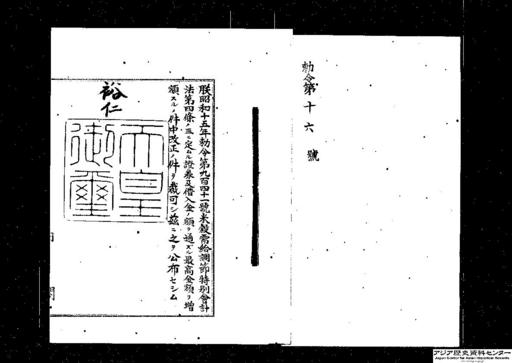 勅令第十六號
朕昭和十五年勅令第九百四十一號米穀需給調節特別會計
法第四條ノ三ニ定ムル證券及借入金ノ額ヲ通ズル最高金額ヲ增
額スルノ件中改正ノ件ヲ裁可シ茲ニ之ヲ公布セシム
裕仁
天皇
御璽
アジア歴史資料センター
Japan Center for Asian Historical Records